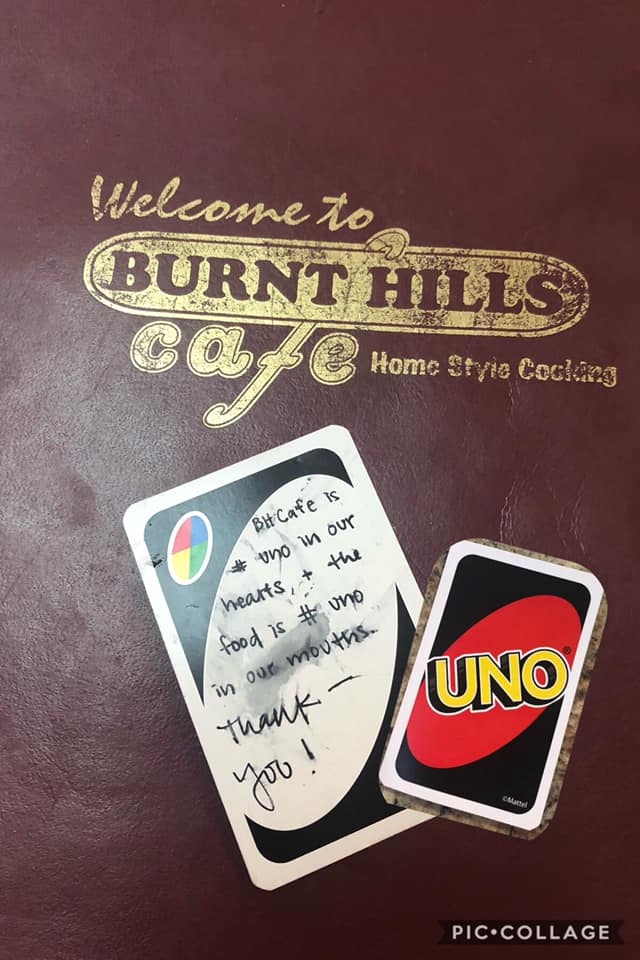 Welcome to
BURNT HILLS
cafe Home Style Cooking
BH Cafe is
# uno in our
hearts, + the
food is # uno
in our mouths.
Thank -
you!
UNO®
©Mattel
PIC•COLLAGE